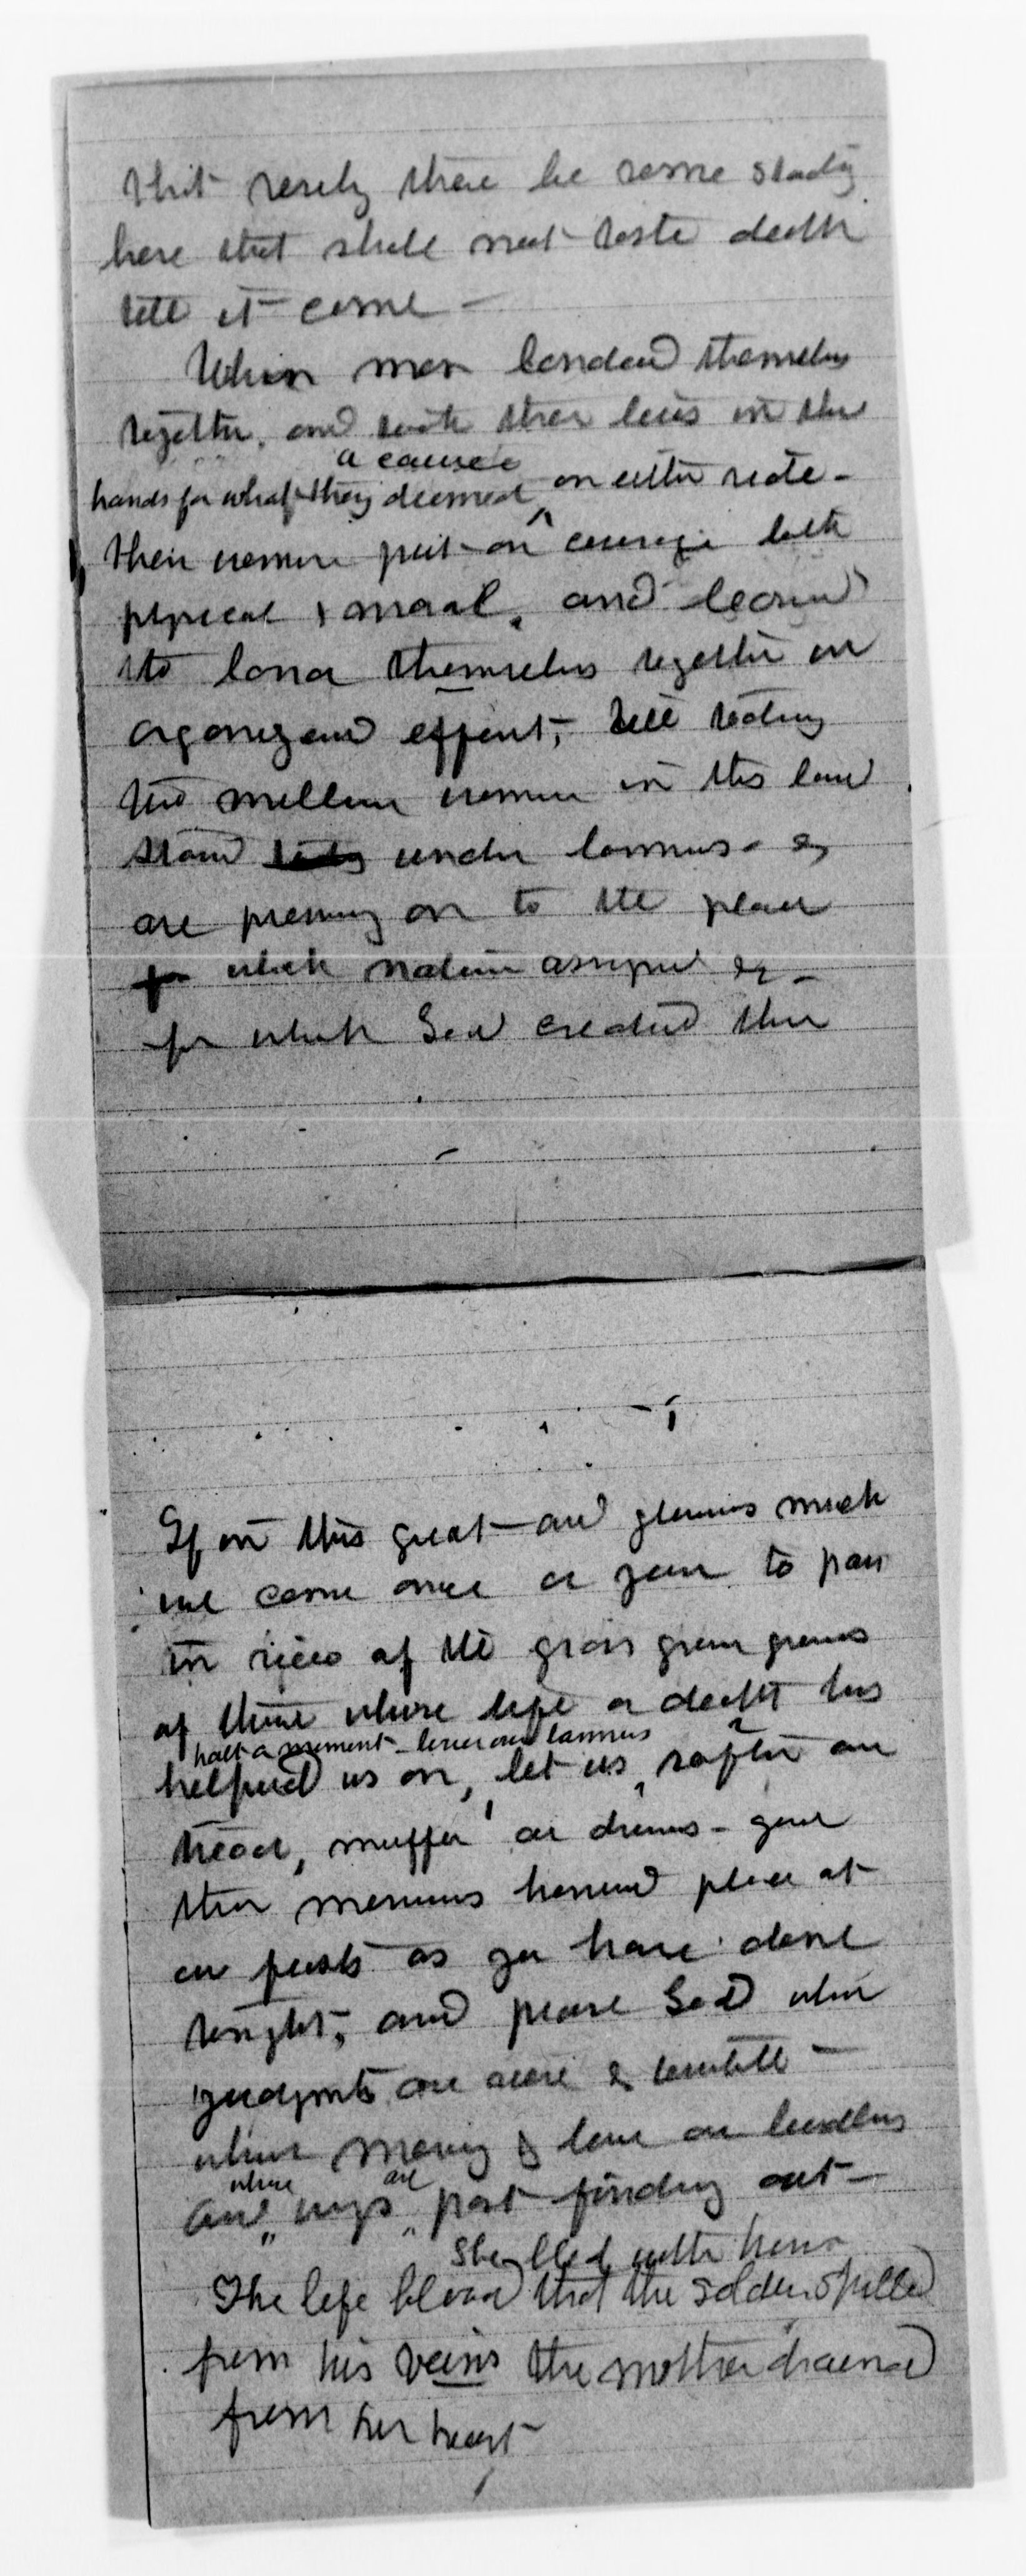 that verily there be some standing
here that shall not taste death
till it come —
When men banded themselves
together, and took their lives in their
a cause
hands for what they deemed ^ on either side —
their women put on courage both
physical & moral, and learned
to band themselves together in
organized effort, till today
two million women in this land
stand under banners - &
are pressing on to the place
for which nature assigned &
for which God created them
If in this great and glorious march
we come once a year to pass
in view of the grass green graves
of those whose life or death has
halt a moment - lower our banners
helped us on, let us ^ soften our
tread, muffle our drums - give
their memories honored place at
our feasts as you have done
tonight, and praise God whose
judgments are sure &
whose mercy & love are boundless
where are
and ways past finding out —
She bled with him
The life blood that the soldier spilled
from his veins the mother drained
from her heart